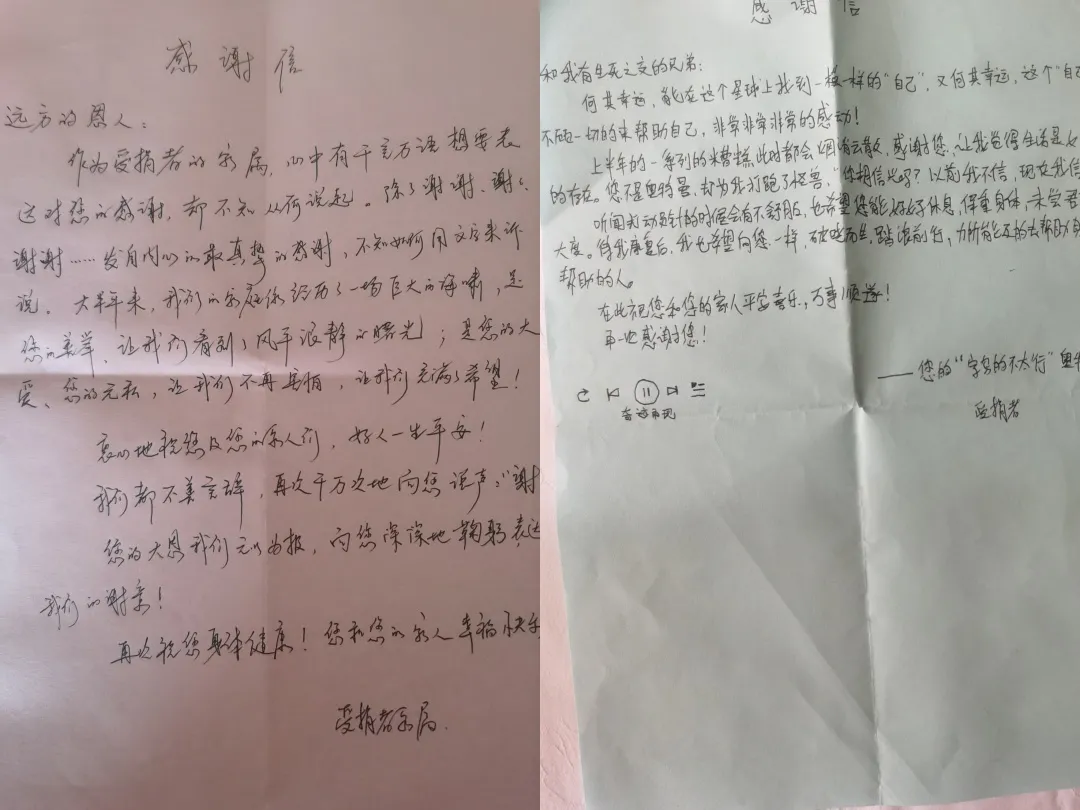 感谢信
远方的恩人：
作为受捐者的家属，心中有千言万语想要表
达对您的感谢，却不知从何说起。除了谢谢、谢谢、
谢谢……发自内心的最真挚的感谢，不知如何用文字来诉
说。大半年来，我们的家庭像经历了一场巨大的海啸，是
您的义举，让我们看到了风平浪静的曙光；是您的大
爱、您的无私，让我们不再畏惧，让我们充满了希望！
衷心地祝您及您的家人们，好人一生平安！
我们都不善言辞，再次千万次地向您说声："谢
您的大恩我们无以为报，向您深深地鞠躬表达
我们的谢意！
再次祝您身体健康！您和您的家人幸福快乐
受捐者家属.
感谢信
和我有生死之交的兄弟：
何其幸运，能在这个星球上找到一模一样的"自己"，又何其幸运，这个"自己
不顾一切的来帮助自己，非常非常非常的感动！
上半年的一系列的糟糕此时都会烟消云散，感谢您，让我觉得生活是
的存在。您不是奥特曼，却为我打跑了怪兽，"你相信光吗？以前我不信，现在我信
听闻打动员针的时候会有不舒服，也希望您能好好休息，保重身体，
大度。待我康复后，我也希望向您一样，破晓而生，踏浪前行，力所能及的去帮助
帮助的人。
在此祝您和您的家人平安喜乐，万事顺遂！
再一次感谢您！
——您的"字写的不太行"
奇迹再现
受捐者